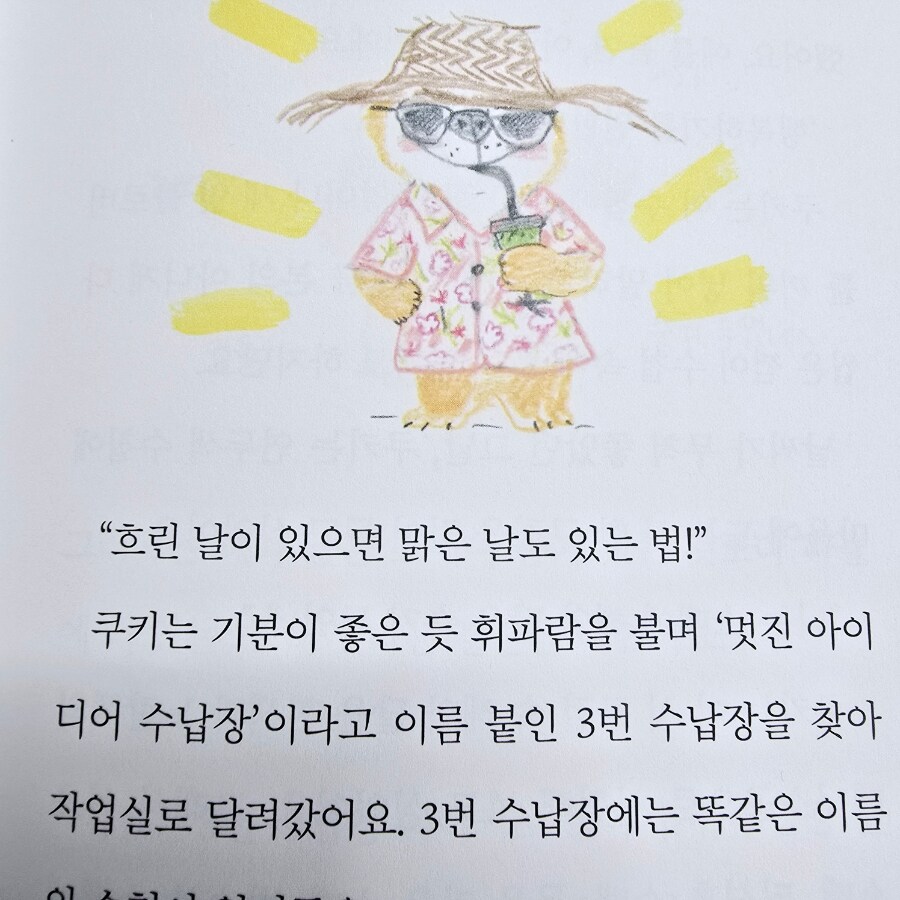 “흐린 날이 있으면 맑은 날도 있는 법!”
쿠키는 기분이 좋은 듯 휘파람을 불며 ‘멋진 아이
디어 수납장’이라고 이름 붙인 3번 수납장을 찾아
작업실로 달려갔어요. 3번 수납장에는 똑같은 이름